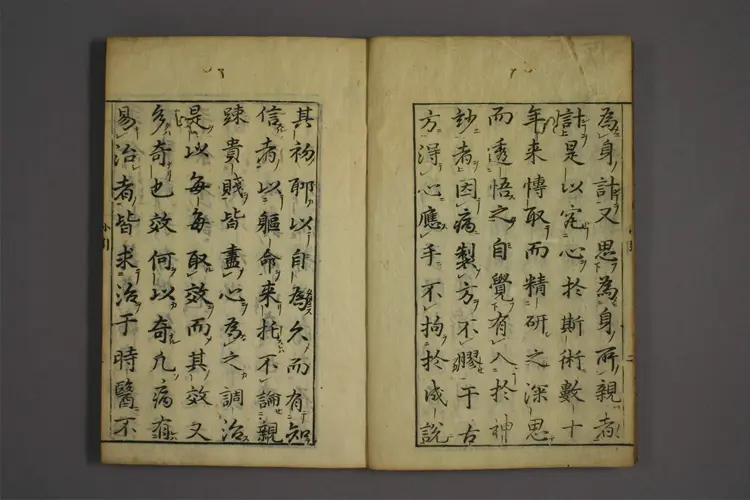 為身計又思為身所親者
計是以宅心於斯術數十
年来慱取而精研之深思
而透悟之自覺有入於神
玅者因病製方不膠于古
方得心應手不拘於成說
其初聊以自為久而有知
信者以軀命来托不論親
踈貴賤皆盡心為之調治
是以每每取效而其效又
多奇也效何以奇凡病有
易治者皆求治于時醫不